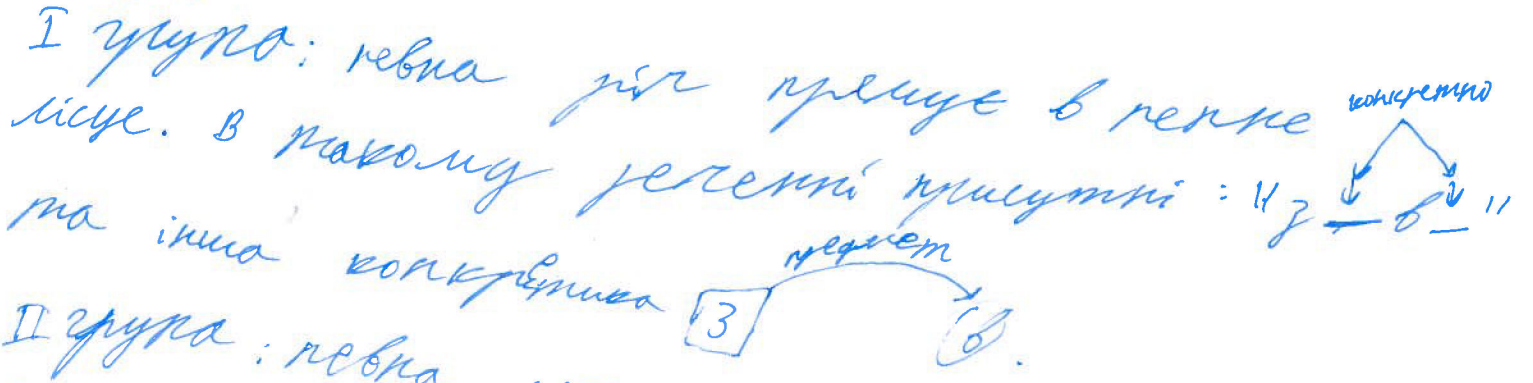 І група: певна річ прямує в певне
місце. В такому реченні присутні: "з _ в _"
конкретно
та інша конкретика
предмет
З
в.
ІІ група: певна